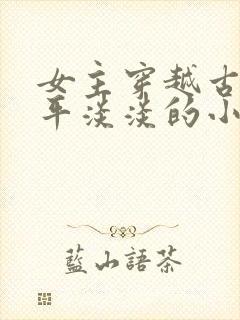 女主穿越古
平淡淡的小
藍山語茶